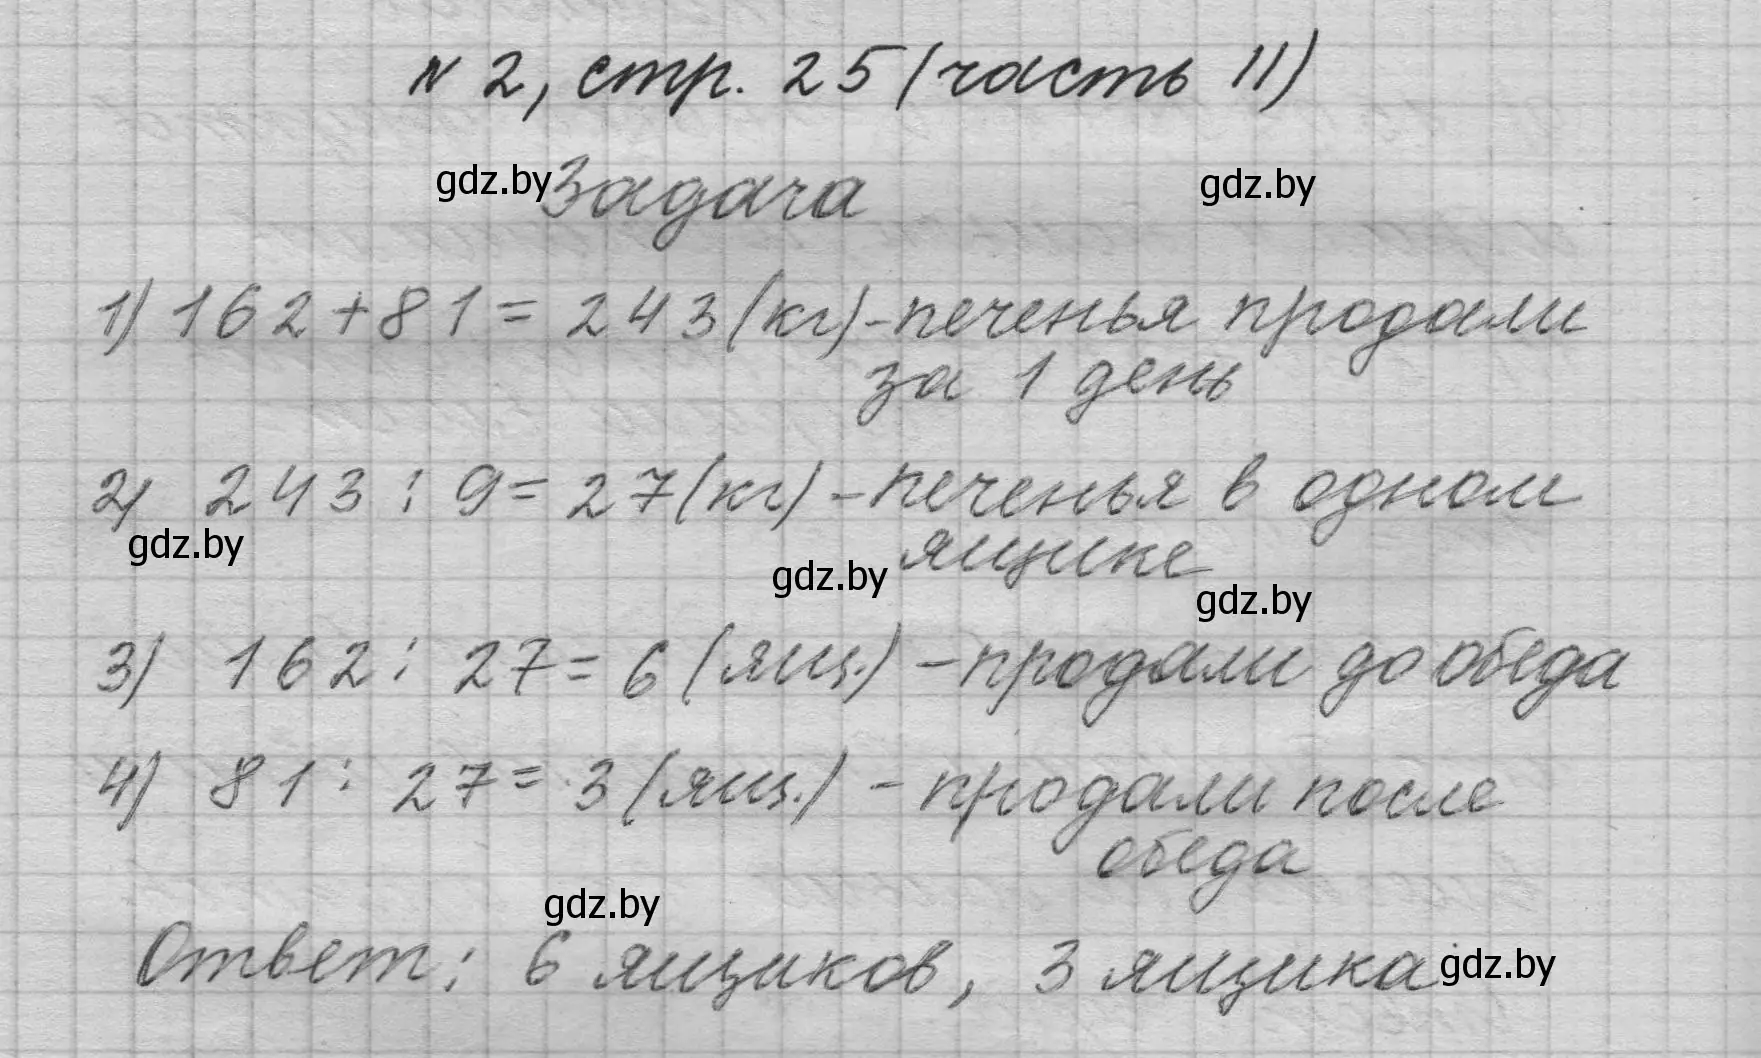 № 2, стр. 25 (часть II)
gdz.by Задача gdz.by
1) 162 + 81 = 243 (кг) - печенья продали
за 1 день
2) 243 : 9 = 27 (кг) - печенья в одном
gdz.by ящике
gdz.by gdz.by
3) 162 : 27 = 6 (ящ.) - продали до обеда
4) 81 : 27 = 3 (ящ.) - продали после
обеда
gdz.by
Ответ: 6 ящиков, 3 ящика gdz.by